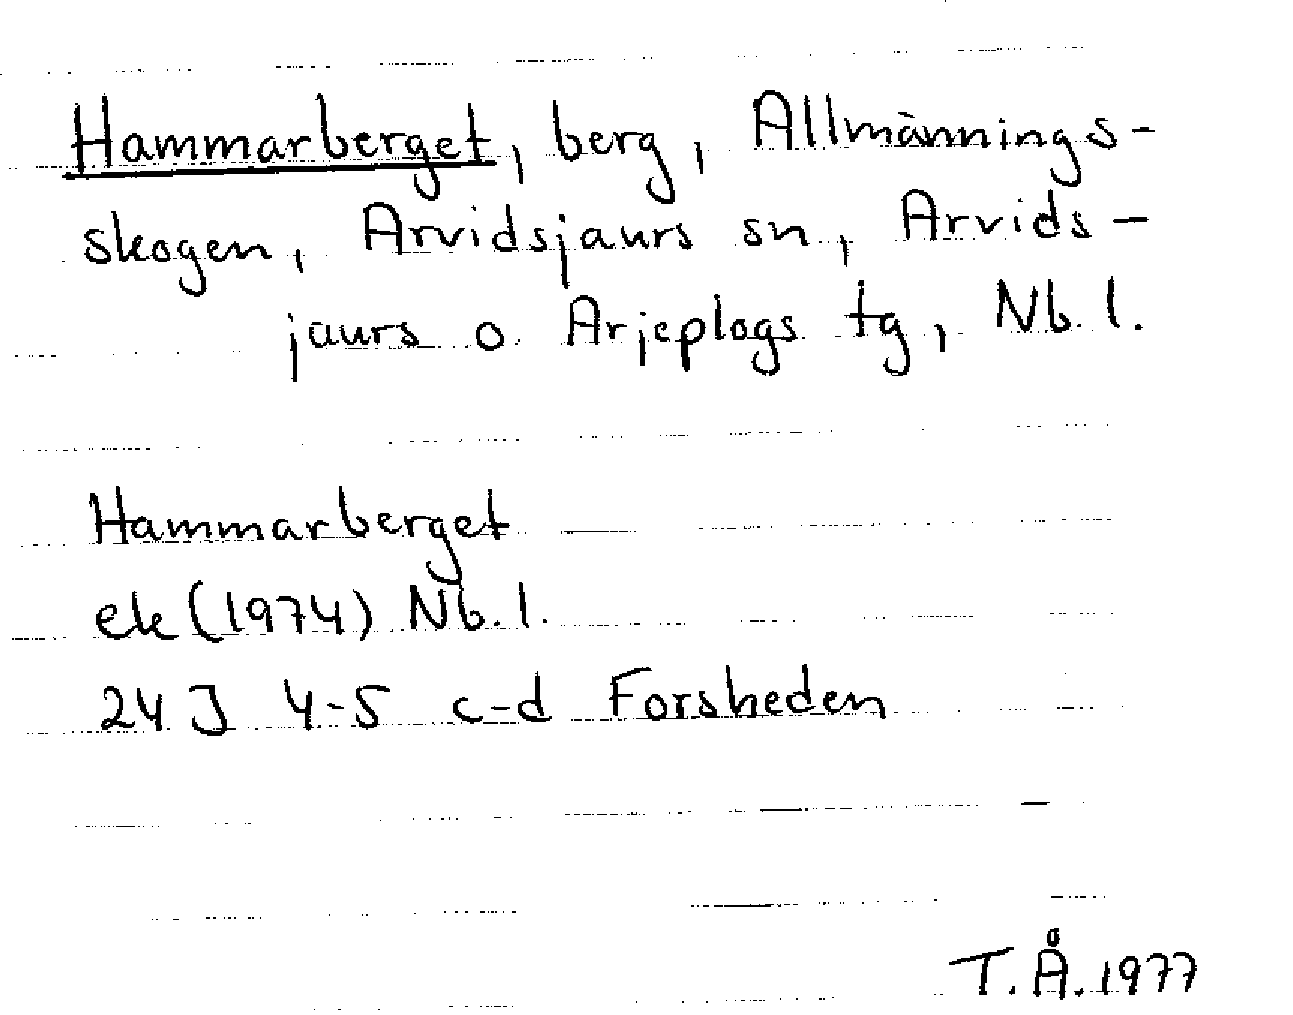 Hammarberget, berg, Allmännings-
skogen, Arvidsjaurs sn, Arvids-
jaurs o. Arjeplogs tg, Nb. l.
Hammarberget
ek (1974) Nb. l.
24 J 4-5 c-d Forsheden
T. Å. 1977